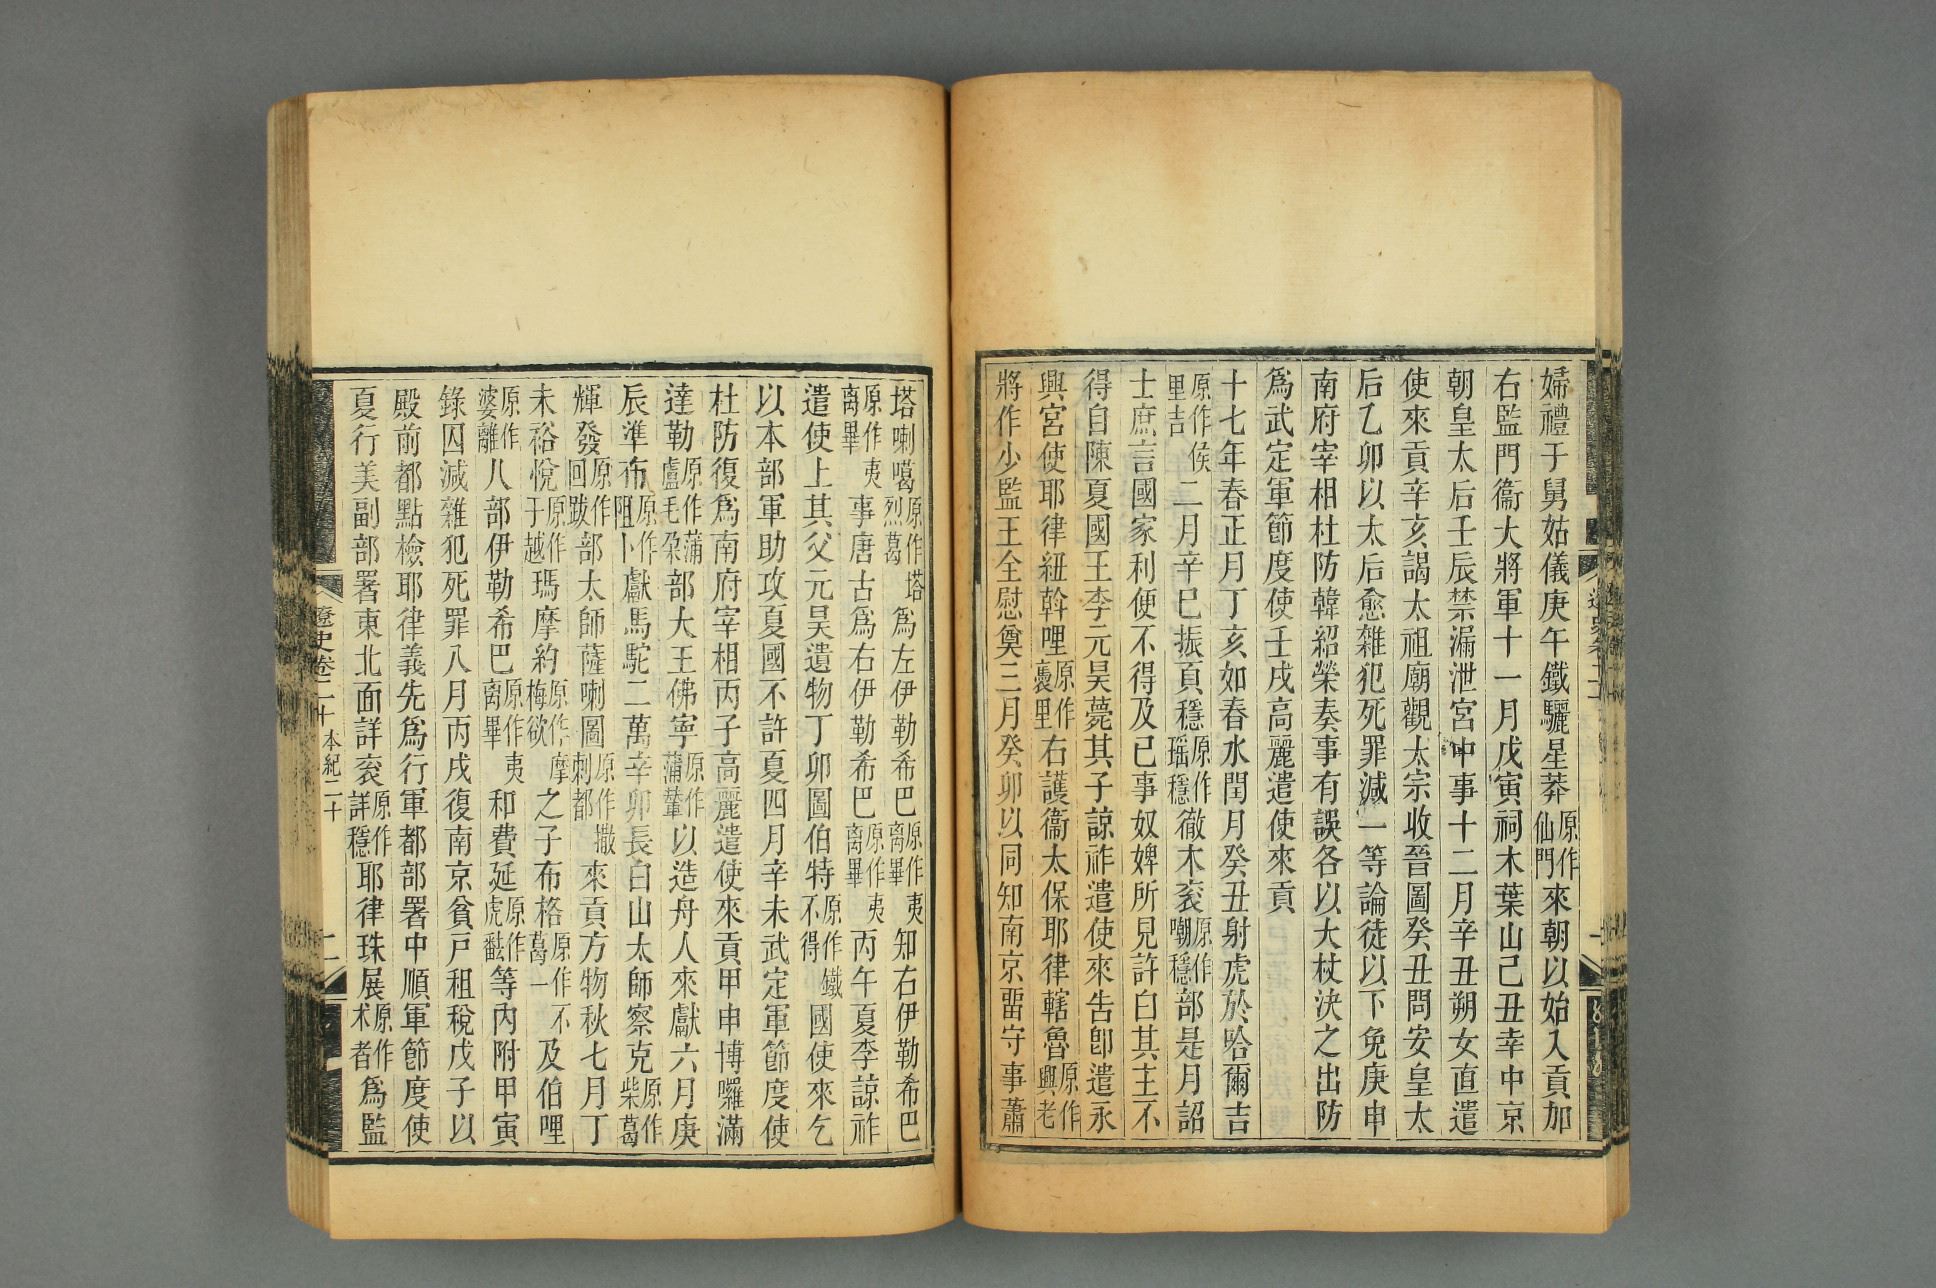 婦禮于舅姑儀庚午鐵驪星莽原作仙門來朝以始入貢加
右監門衞大將軍十一月戊寅祠木葉山己丑幸中京
朝皇太后壬辰禁漏泄宮中事十二月辛丑朔女直遣
使來貢辛亥謁太祖廟觀太宗收晉圖癸丑問安皇太
后乙卯以太后愈雜犯死罪減一等論徒以下免庚申
南府宰相杜防韓紹榮奏事有誤各以大杖決之出防
爲武定軍節度使壬戌高麗遣使來貢
十七年春正月丁亥如春水閏月癸丑射虎於哈爾吉
原作侯里吉二月辛巳振頁穩原作瑶穩徹木衮原作嘲穩部是月詔
士庶言國家利便不得及己事奴婢所見許白其主不
得自陳夏國王李元昊薨其子諒祚遣使來告卽遣永
興宮使耶律紐斡哩原作裹里右護衞太保耶律轄魯原作興老
將作少監王全慰奠三月癸卯以同知南京畱守事蕭
塔喇噶原作塔烈葛爲左伊勒希巴原作夷离畢知右伊勒希巴
原作夷离畢事唐古爲右伊勒希巴原作夷离畢丙午夏李諒祚
遣使上其父元昊遺物丁卯圖伯特原作鐵不得國使來乞
以本部軍助攻夏國不許夏四月辛未武定軍節度使
杜防復爲南府宰相丙子高麗遣使來貢甲申博囉滿
達勒原作蒲盧毛朶部大王佛寧原作蒲輦以造舟人來獻六月庚
辰準布原作阻卜獻馬駝二萬辛卯長白山太師察克原作柴葛
輝發原作回跋部太師薩喇圖原作撒剌都來貢方物秋七月丁
未裕悅原作于越瑪摩約原作摩梅欲之子布格原作不葛一及伯哩
原作婆離八部伊勒希巴原作夷离畢和費延原作虎𪓰等內附甲寅
錄囚減雜犯死罪八月丙戌復南京貧戸租稅戊子以
殿前都點檢耶律義先爲行軍都部署中順軍節度使
夏行美副部署東北面詳衮原作詳穩耶律珠展原作术者爲監
遼史卷二十 本紀二十 二